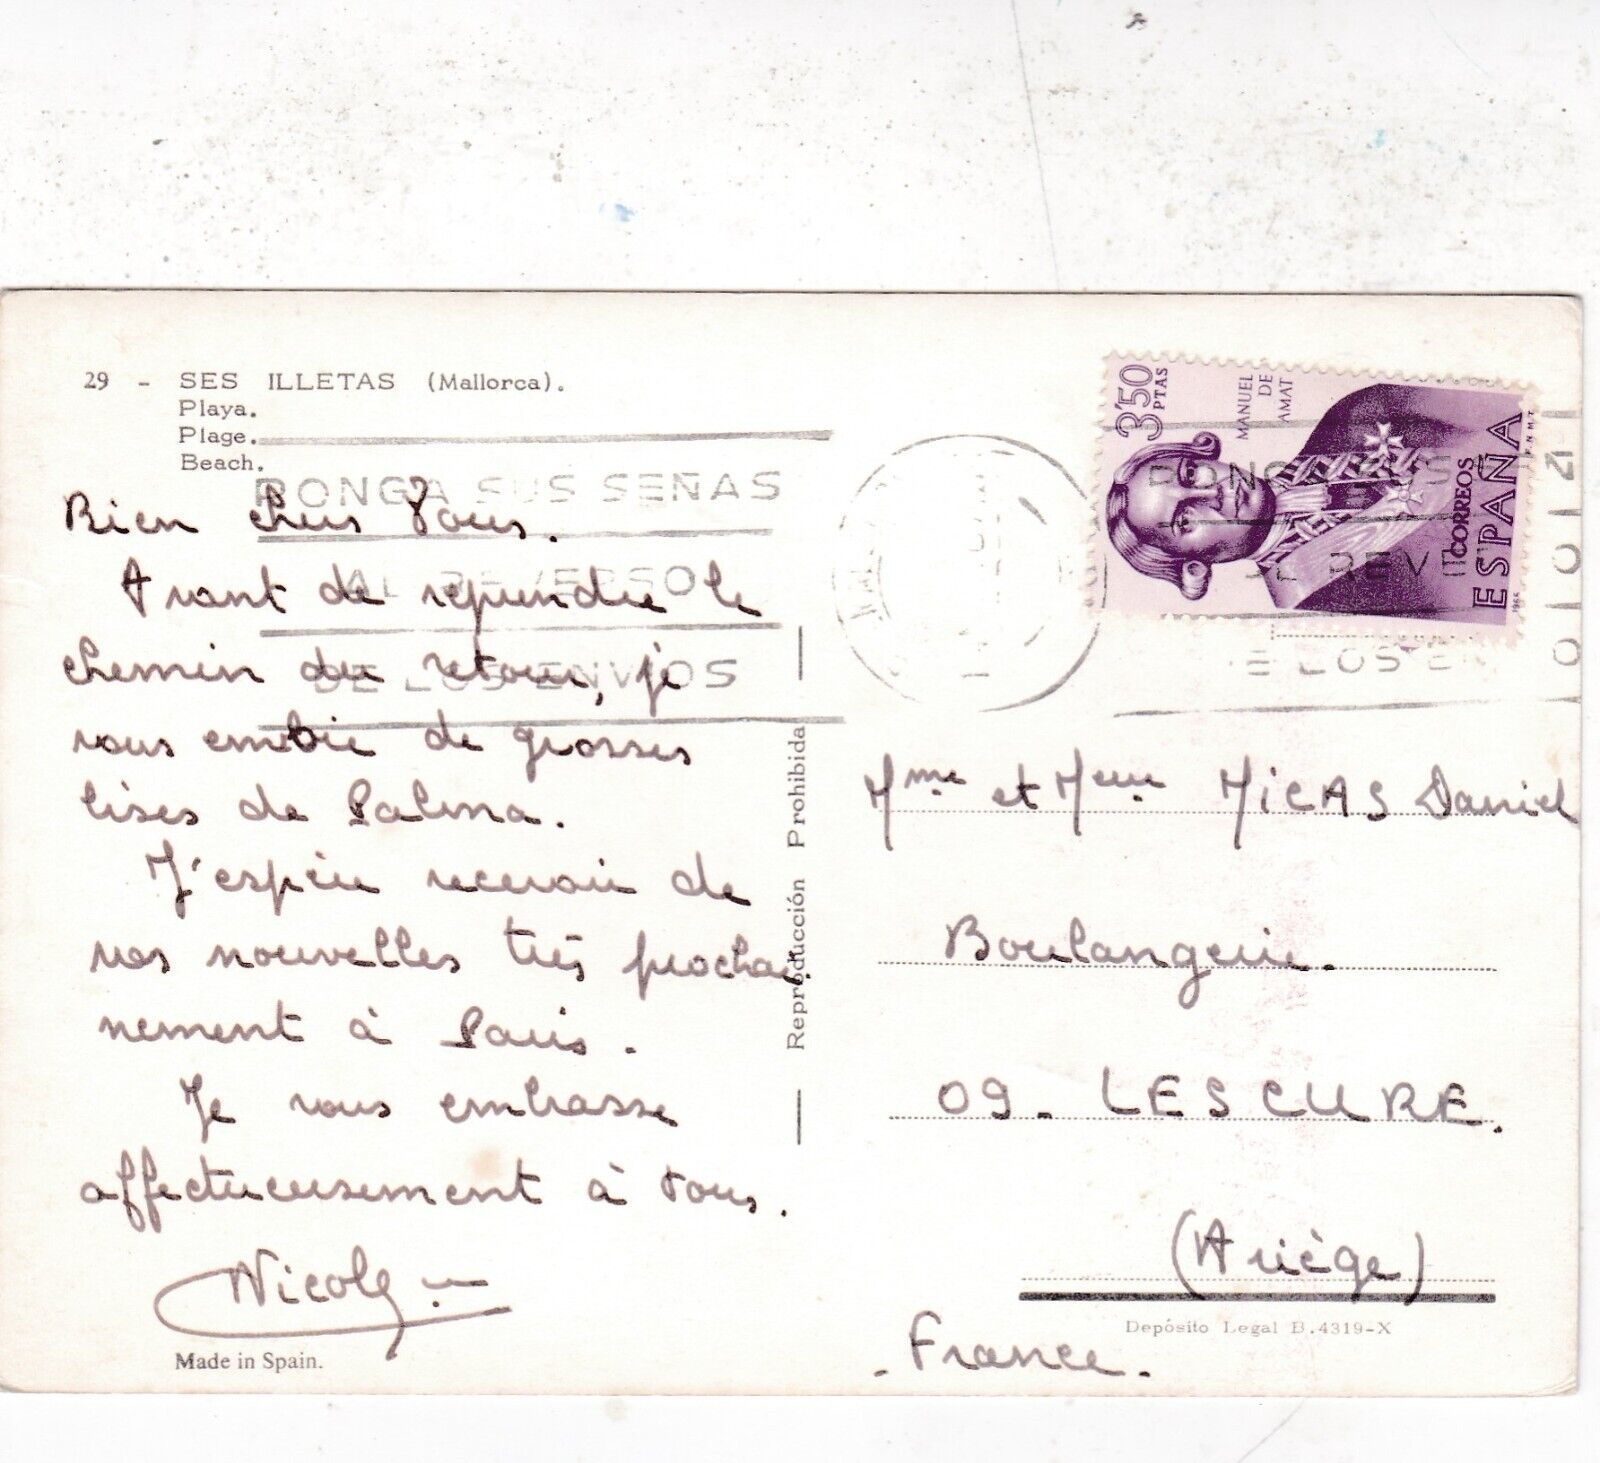 29 - SES ILLETAS (Mallorca).
Playa.
Plage.
Beach.
PONGA SUS SEÑAS
AL REVERSO
DE LOS ENVIOS
Bien chers Tous.
Avant de reprendre le
chemin du retour, je
vous envoie de grosses
bises de Palma.
J'espère recevoir de
vos nouvelles très prochai
nement à Paris.
Je vous embrasse
affectueusement à tous.
Nicole
Made in Spain.
Reproducción Prohibida
3'50
PTAS
MANUEL
DE
AMAT
CORREOS
ESPAÑA
F.N.M.T.
1966
PONGA SUS S
AL REVE
DE LOS EN
Mme et Mieur MICAS Daniel
Boulangerie.
09. LESCURE.
(Ariège)
Depósito Legal B.4319-X
France.